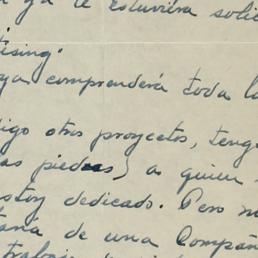 ya te estuviera solic
tising".
ya comprenderá toda la
digo otros proyectos, teng
as piedras) a quien
estoy dedicado. Pero n
tana de una Compañ
trabajo